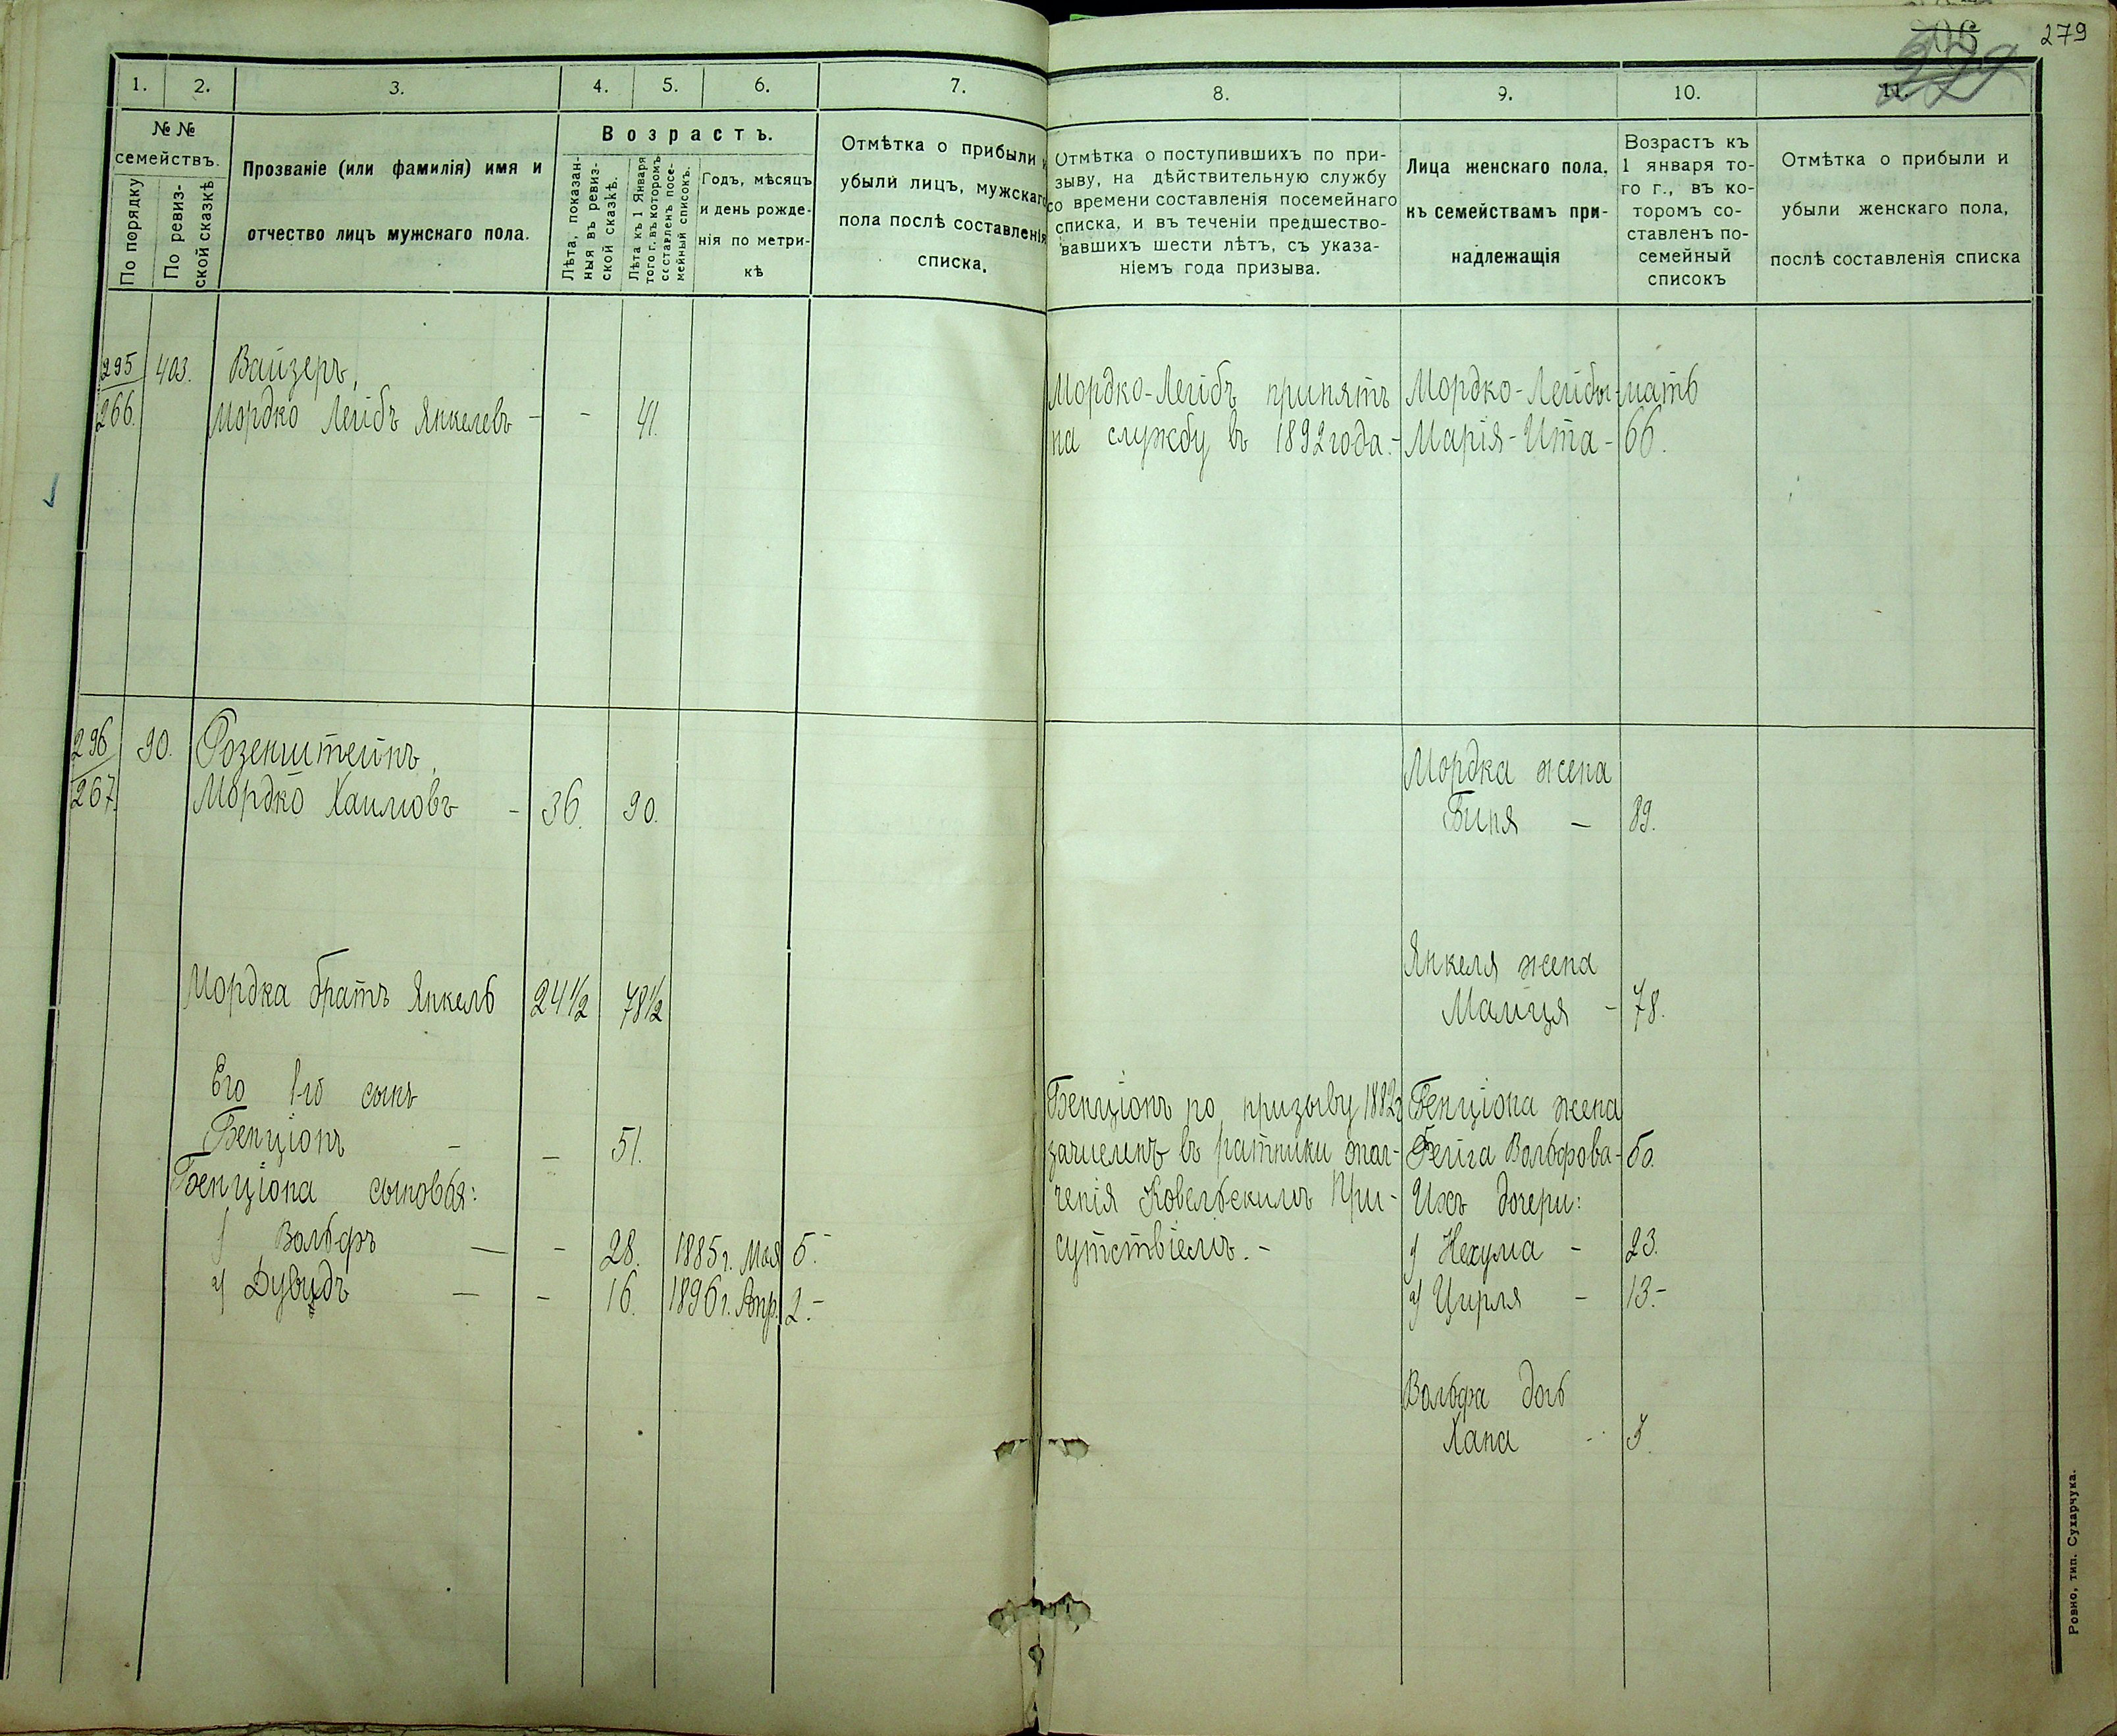 279
1. 2. 3. 4. 5. 6. 7.
№ №
семействъ.
По порядку
По ревиз-
ской сказкѣ
Прозваніе (или фамилія) имя и
отчество лицъ мужскаго пола.
Возрастъ.
Лѣта, показан-
ныя въ ревиз-
ской сказкѣ.
Лѣта къ 1 Января
того г. въ которомъ
составленъ посе-
мейный списокъ.
Годъ, мѣсяцъ
и день рожде-
нія по метри-
кѣ
Отмѣтка о прибыли и
убыли лицъ, мужскаго
пола послѣ составленія
списка.
295
266.
403.
Вайзеръ,
Мордко Лейбъ Янкелевъ - - 41.
296
267.
90.
Розенштейнъ
Мордко Хаимовъ - 36. 90.
Мордка братъ Янкель 24½ 78½
Его 1-й сынъ
Бенціонъ - - 51.
Бенціона сыновья:
1) Вольфъ — - 28. 1885 г. Мая 5.-
2) Дувидъ — - 16. 1896 г. Апр. 2.-
8. 9. 10. 11.
Отмѣтка о поступившихъ по при-
зыву, на дѣйствительную службу
со времени составленія посемейнаго
списка, и въ теченіи предшество-
вавшихъ шести лѣтъ, съ указа-
ніемъ года призыва.
Лица женскаго пола,
къ семействамъ при-
надлежащія
Возрастъ къ
1 января то-
го г., въ ко-
торомъ со-
ставленъ по-
семейный
списокъ
Отмѣтка о прибыли и
убыли женскаго пола,
послѣ составленія списка
Мордко-Лейбъ принятъ
на службу въ 1892 года.-
Мордко-Лейбы-мать
Марія-Ита - 66.
Мордка жена
Биня — 89.
Янкеля жена
Малця - 78.
Бенціонъ по призыву 1882 г
зачисленъ въ ратники опол-
ченія Ковельскимъ При-
сутствіемъ.-
Бенціона жена
Фейга Вольфова - 50.
Ихъ дочери:
1) Нехума - 23.
2) Цирля - 13.-
Вольфа дочь
Хана -
Ровно, тип. Сухарчука.